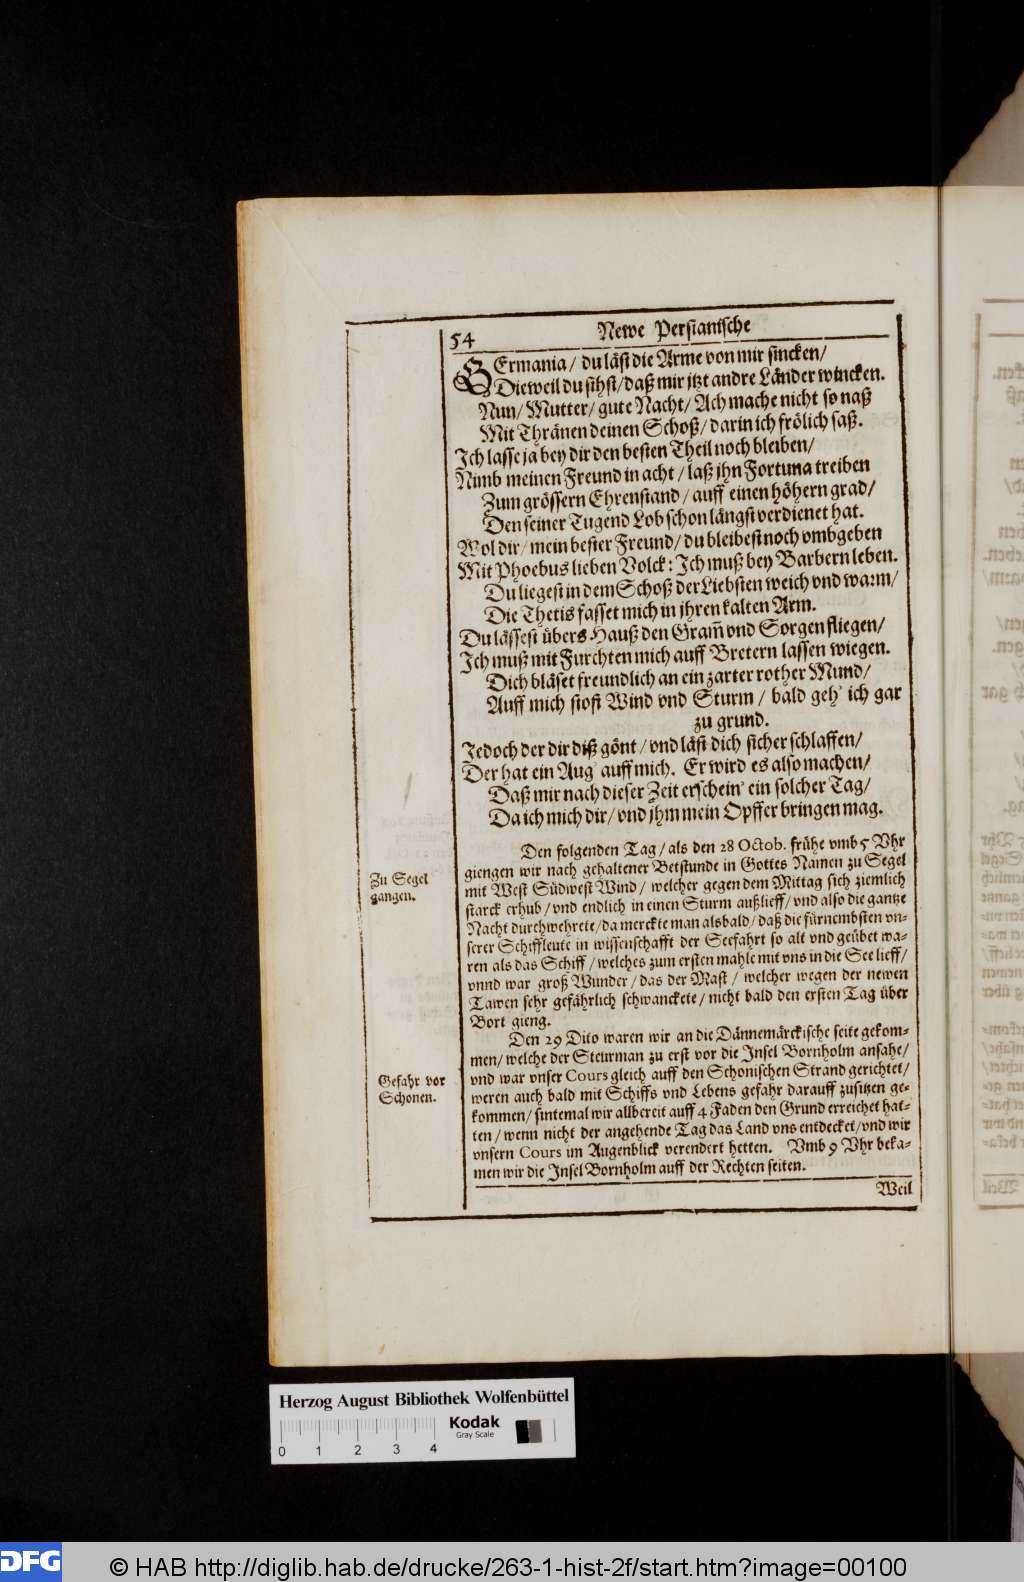 54 Newe Persianische
GErmania/ du läst die Arme von mir sincken/
Dieweil du sihst/ daß mir jtzt andre Länder wincken.
Nun/ Mutter/ gute Nacht/ Ach mache nicht so naß
Mit Thränen deinen Schoß/ darin ich frölich saß.
Ich lasse ja bey dir den besten Theil noch bleiben/
Nimb meinen Freund in acht/ laß jhn Fortuna treiben
Zum grössern Ehrenstand/ auff einen höhern grad/
Den seiner Tugend Lob schon längst verdienet hat.
Wol dir/ mein bester Freund/ du bleibest noch vmbgeben
Mit Phoebus lieben Volck: Ich muß bey Barbern leben.
Du liegest in dem Schoß der Liebsten weich vnd warm/
Die Thetis fasset mich in jhren kalten Arm.
Du lässest übers Hauß den Gram̃ vnd Sorgen fliegen/
Ich muß mit Furchten mich auff Bretern lassen wiegen.
Dich bläset freundlich an ein zarter rother Mund/
Auff mich stost Wind vnd Sturm/ bald geh' ich gar
zu grund.
Jedoch der dir diß gönt/ vnd läst dich sicher schlaffen/
Der hat ein Aug' auff mich. Er wird es also machen/
Daß mir nach dieser Zeit erschein' ein solcher Tag/
Da ich mich dir/ vnd jhm mein Opffer bringen mag.
Den folgenden Tag/ als den 28 Octob. frühe vmb 5 Vhr
giengen wir nach gehaltener Betstunde in Gottes Namen zu Segel
mit West Südwest Wind/ welcher gegen dem Mittag sich ziemlich
starck erhub/ vnd endlich in einen Sturm außlieff/ vnd also die gantze
Nacht durchwehrete/ da merckte man alsbald/ daß die fürnembsten vn-
serer Schiffleute in wissenschafft der Seefahrt so alt vnd geübet wa-
ren als das Schiff/ welches zum ersten mahle mit vns in die See lieff/
vnnd war groß Wunder/ das der Mast/ welcher wegen der newen
Tawen sehr gefährlich schwanckete/ nicht bald den ersten Tag über
Bort gieng.
Zu Segel
gangen.
Den 29 Dito waren wir an die Dännemärckische seite gekom-
men/ welche der Steurman zu erst vor die Insel Bornholm ansahe/
vnd war vnser Cours gleich auff den Schonischen Strand gerichtet/
weren auch bald mit Schiffs vnd Lebens gefahr darauff zusitzen ge-
kommen/ sintemal wir allbereit auff 4 Faden den Grund erreichet hat-
ten/ wenn nicht der angehende Tag das Land vns entdecket/ vnd wir
vnsern Cours im Augenblick verendert hetten. Vmb 9 Vhr beka-
men wir die Insel Bornholm auff der Rechten seiten.
Gefahr vor
Schonen.
Weil
Herzog August Bibliothek Wolfenbüttel
Kodak
Gray Scale
0 1 2 3 4
DFG
© HAB http://diglib.hab.de/drucke/263-1-hist-2f/start.htm?image=00100